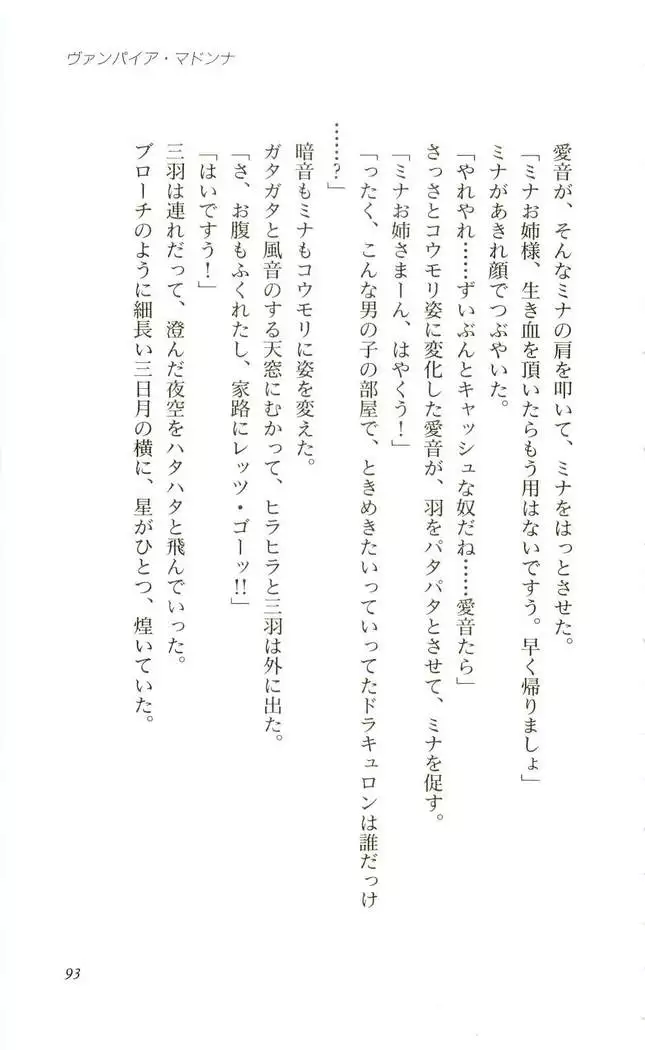 ヴァンパイア・マドンナ
愛音が、そんなミナの肩を叩いて、ミナをはっとさせた。
「ミナお姉様、生き血を頂いたらもう用はないですう。早く帰りましょ」
ミナがあきれ顔でつぶやいた。
「やれやれ……ずいぶんとキャッシュな奴だね……愛音たら」
さっさとコウモリ姿に変化した愛音が、羽をパタパタとさせて、ミナを促す。
「ミナお姉さまーん、はやくう！」
「ったく、こんな男の子の部屋で、ときめきたいっていってたドラキュロンは誰だっけ
………？」
暗音もミナもコウモリに姿を変えた。
ガタガタと風音のする天窓にむかって、ヒラヒラと三羽は外に出た。
「さ、お腹もふくれたし、家路にレッツ・ゴーッ!!」
「はいですう！」
三羽は連れだって、澄んだ夜空をハタハタと飛んでいった。
ブローチのように細長い三日月の横に、星がひとつ、煌いていた。
93